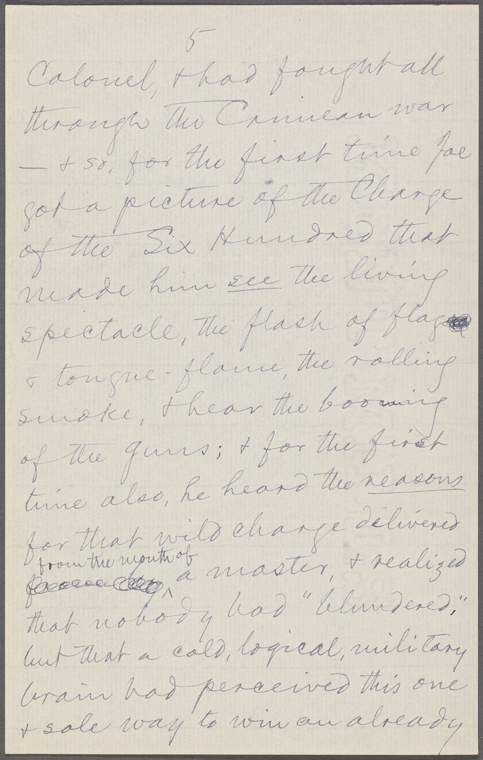 5
Colonel, & had fought all
through the Crimean war
— & so, for the first time Joe
got a picture of the Charge
of the Six Hundred that
made him see the living
spectacle, the flash of flag
& tongue-flame, the rolling
smoke, & hear the booming
of the guns; & for the first
time also, he heard the reasons
for that wild charge delivered
from the mouth of
a master, & realized
that nobody had "blundered,"
but that a cold, logical, military
brain had perceived this one
& sole way to win an already